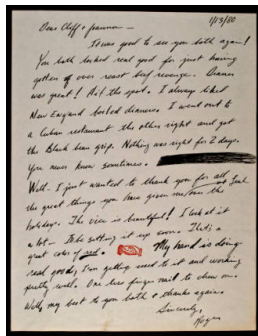 1/13/80
Dear Cliff +
It was good to see you both again!
You both looked real good for just having
gotten over roast beef revenge. Dinner
was great! Hit the spot. I always liked
New England boiled dinners. I went out to
a Cuban restaurant the other night and got
the Black bean grip. Nothing was right for 2 days.
You never know sometimes.
Well. I just wanted to thank you for all
the great things you have given me over the
holidays. The vise is beautiful! I look at it
a lot - I'll be setting it up soon. That's a
great color of red. My hand is doing
real good, I'm getting used to it and working
pretty well. One less finger nail to chew on.
Well, my best to you both + thanks again.
Sincerely,
Roger